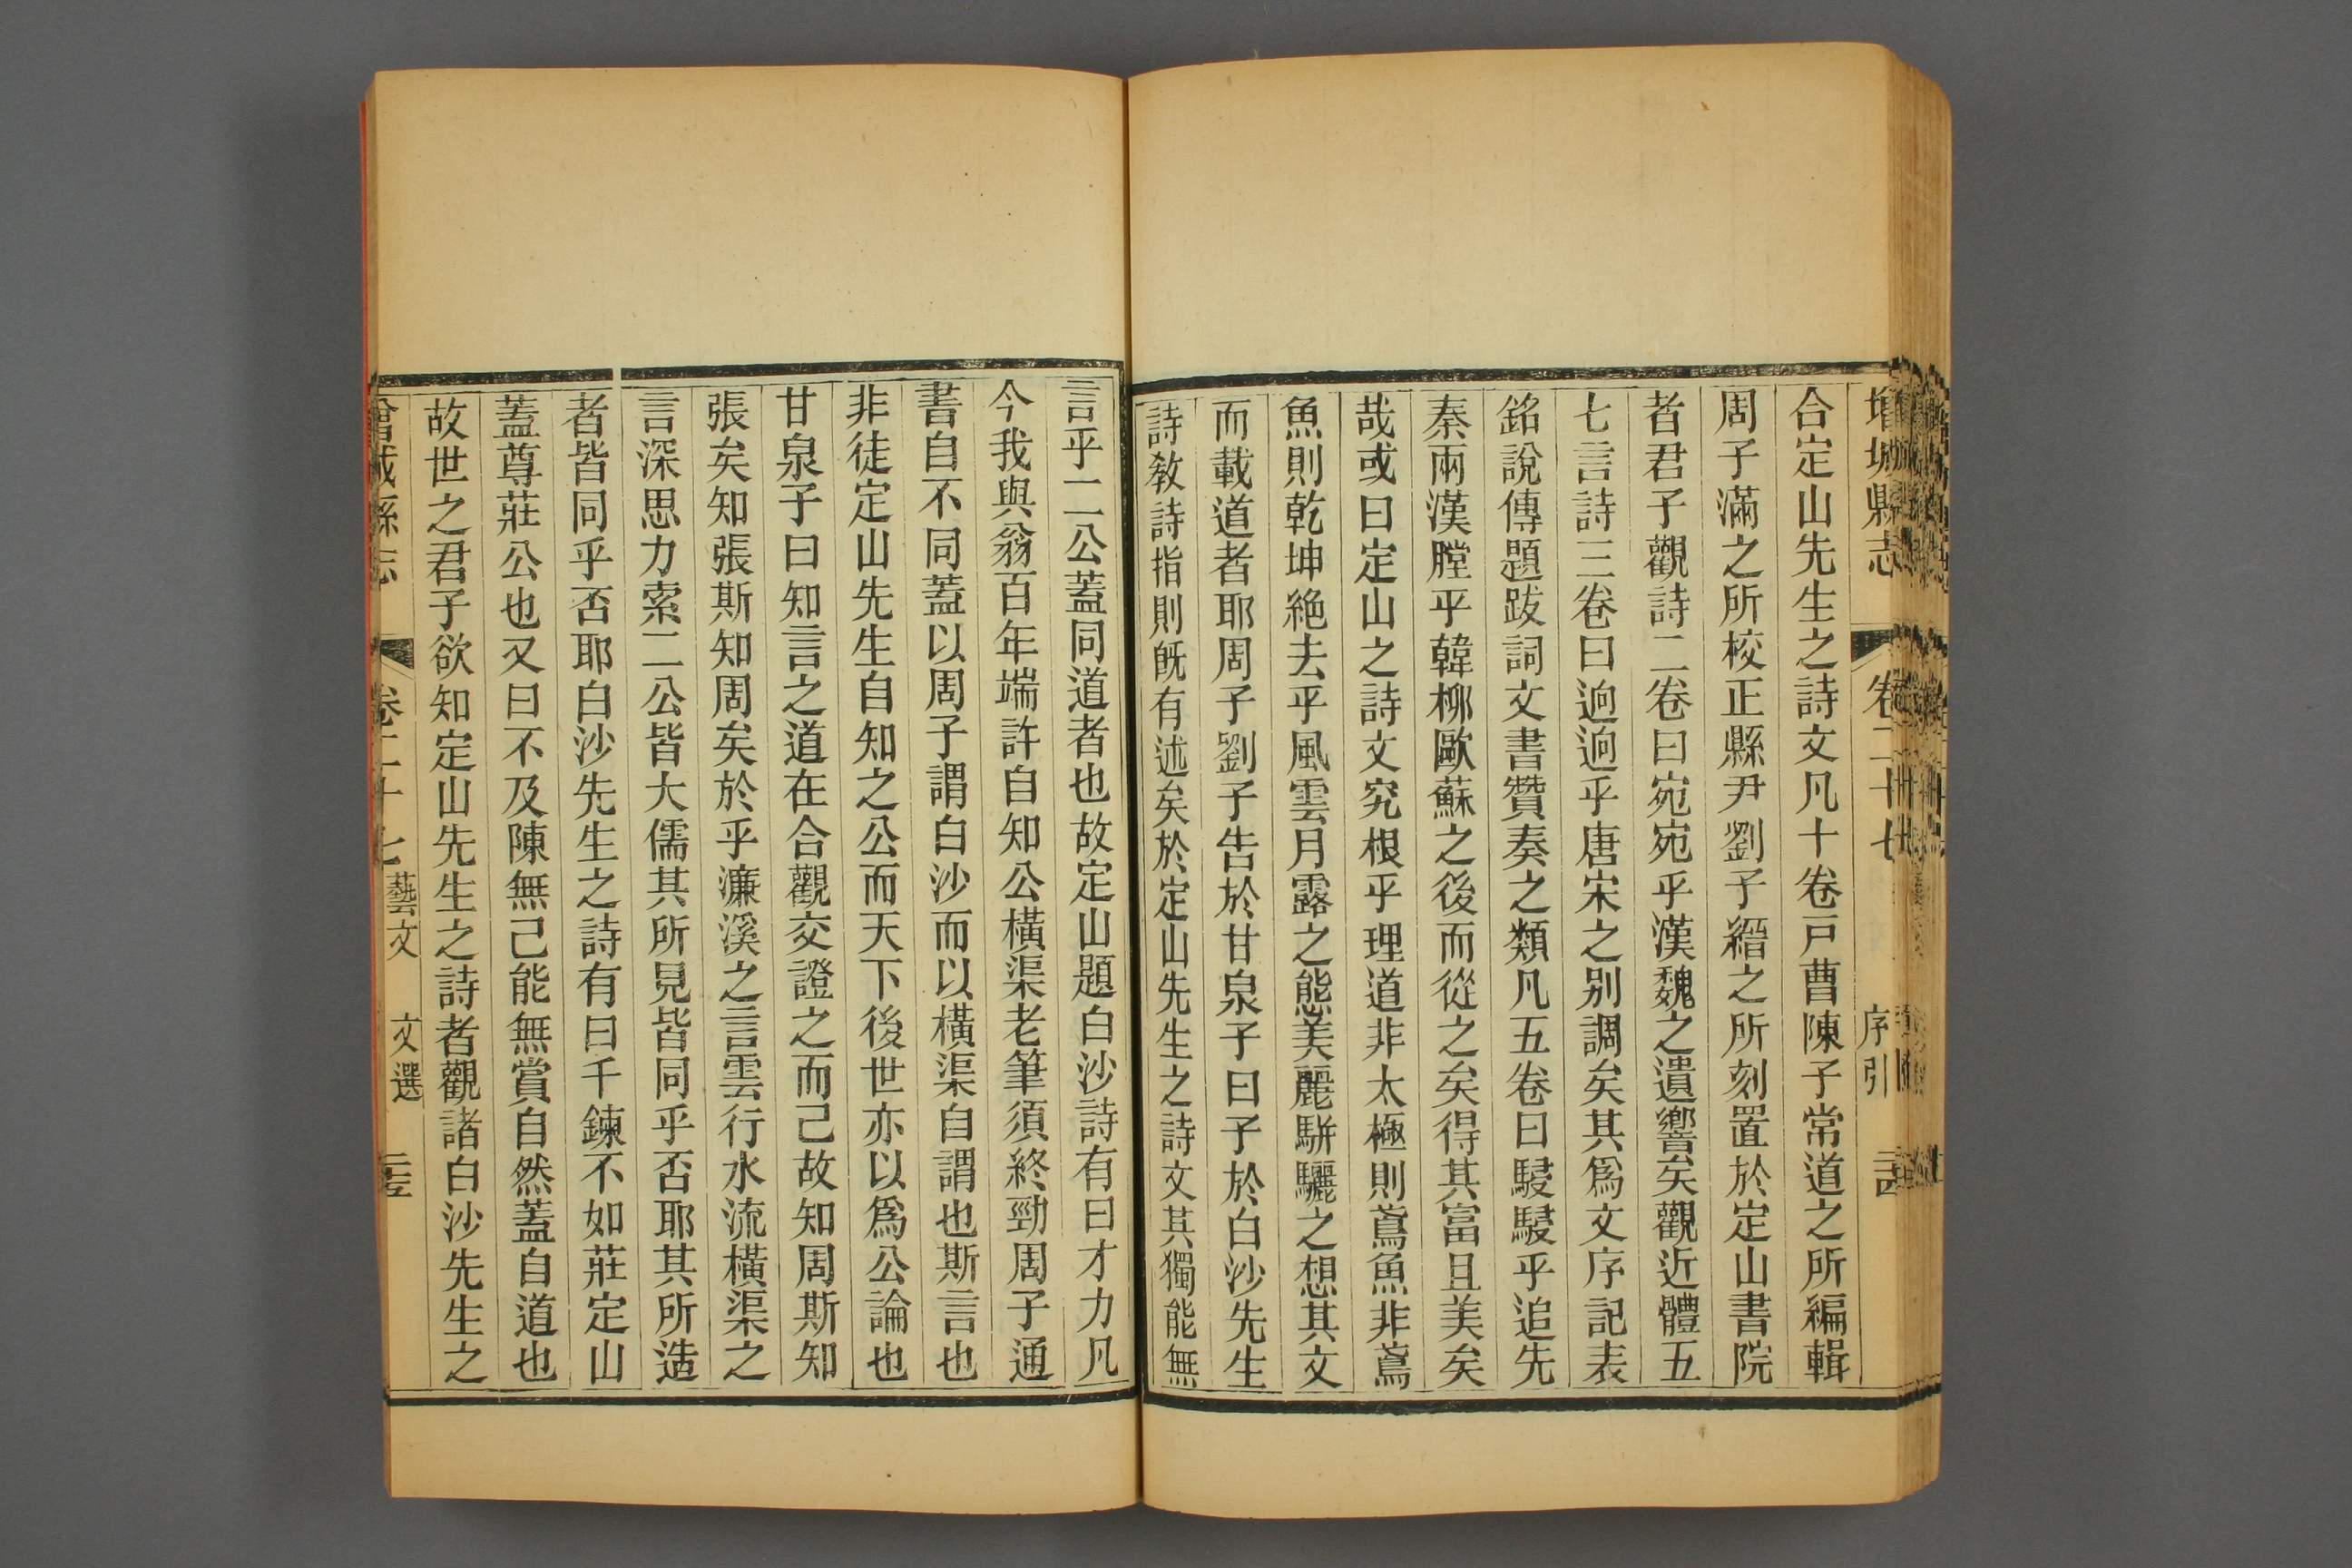 增城縣志 卷二十七 序引
合定山先生之詩文凡十卷戸曹陳子常道之所編輯
周子滿之所校正縣尹劉子縉之所刻置於定山書院
者君子觀詩二卷曰宛宛乎漢魏之遺響矣觀近體五
七言詩三卷曰逈逈乎唐宋之别調矣其爲文序記表
銘說傳題跋詞文書贊奏之類凡五卷曰駸駸乎追先
秦兩漢瞠乎韓柳歐蘇之後而從之矣得其富且美矣
哉或曰定山之詩文究根乎理道非太極則鳶魚非鳶
魚則乾坤絶去乎風雲月露之態美麗駢驪之想其文
而載道者耶周子劉子告於甘泉子曰子於白沙先生
詩敎詩指則旣有述矣於定山先生之詩文其獨能無
言乎二公蓋同道者也故定山題白沙詩有曰才力凡
今我與翁百年端許自知公橫渠老筆須終勁周子通
書自不同蓋以周子謂白沙而以橫渠自謂也斯言也
非徒定山先生自知之公而天下後世亦以爲公論也
甘泉子曰知言之道在合觀交證之而已故知周斯知
張矣知張斯知周矣於乎濂溪之言雲行水流橫渠之
言深思力索二公皆大儒其所見皆同乎否耶其所造
者皆同乎否耶白沙先生之詩有曰千鍊不如莊定山
蓋尊莊公也又曰不及陳無己能無賞自然蓋自道也
故世之君子欲知定山先生之詩者觀諸白沙先生之
增城縣志 卷二十七 藝文 文選